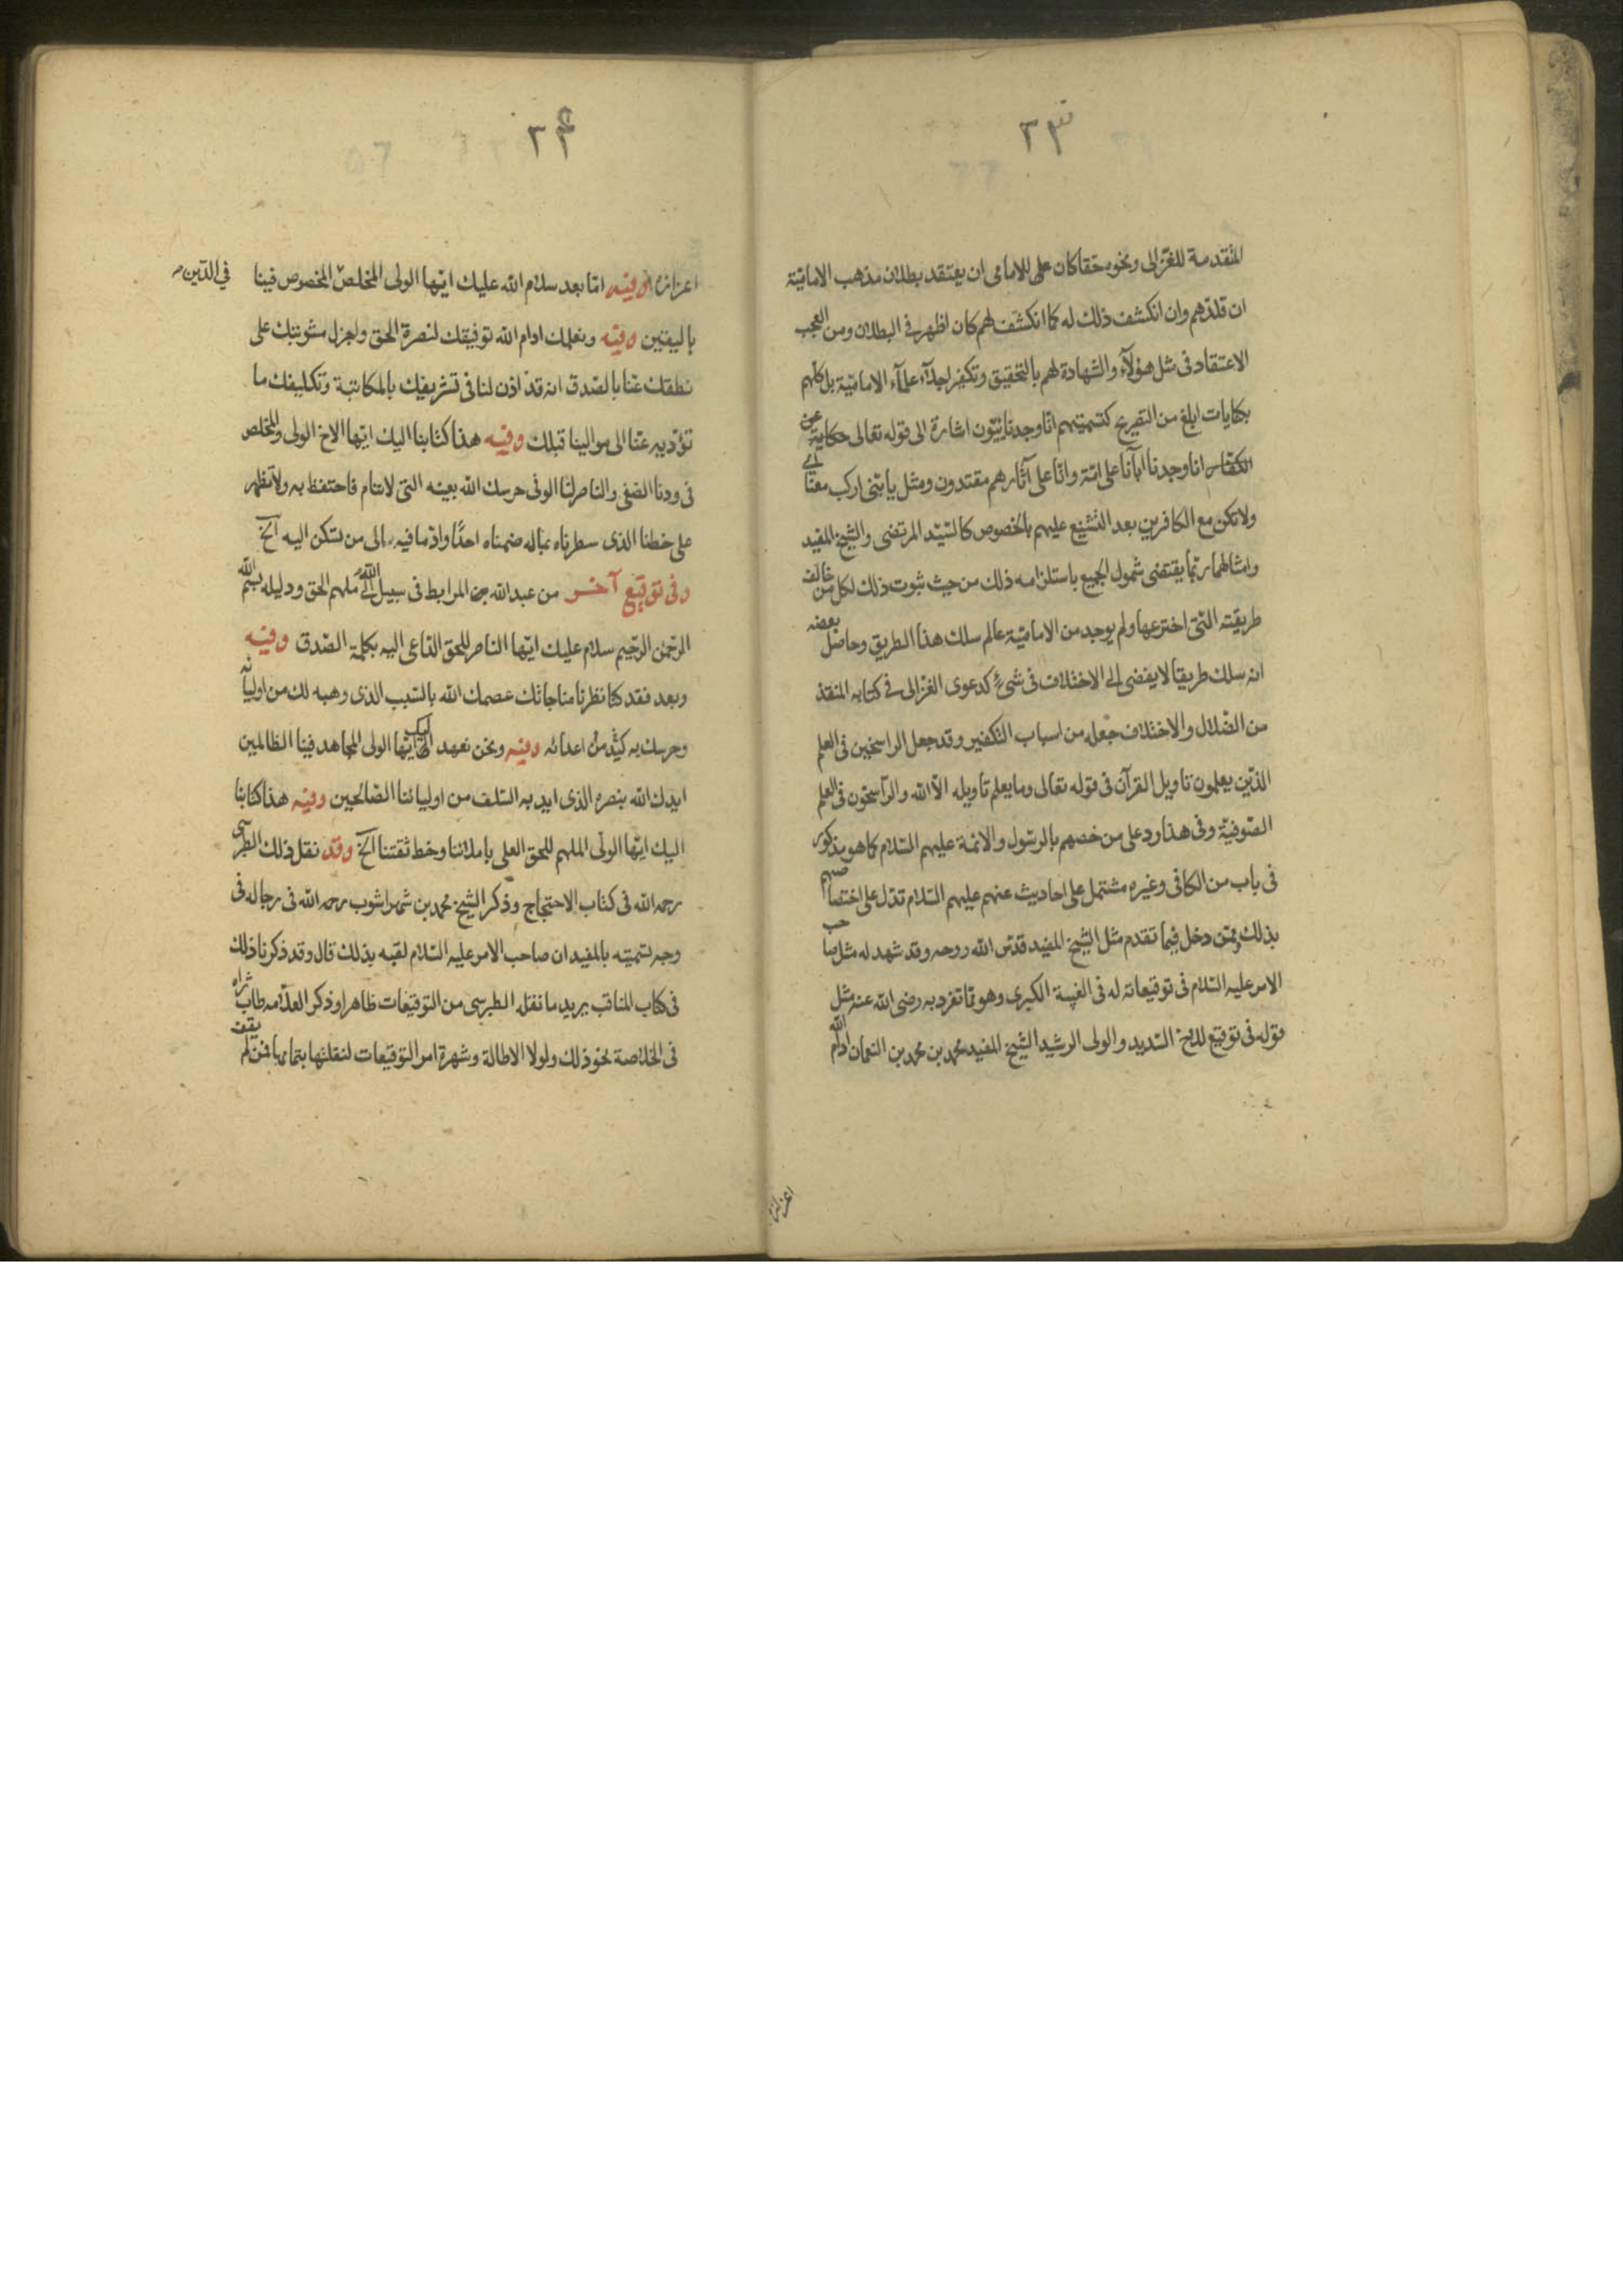 ٢٣
المتقدمة للغزالى ونحوه حقا كان على للامامى ان يعتقد بطلان مذهب الامامية
ان قلدهم وان انكشف ذلك له كما انكشف لهم كان اظهر فى البطلان ومن العجب
الاعتقاد فى مثل هؤلاء والشهادة لهم بالتحقيق وتكفير اجلاء علماء الامامية بل كلهم
بكنايات ابلغ من التصريح كتسميتهم انا وجدنائيون اشارة الى قوله تعالى حكاية عن
الكفار انا وجدنا اباءنا على امة وانا على آثارهم مقتدون ومثل يا بنى اركب معنا
ولا تكن مع الكافرين بعد التشنيع عليهم بالخصوص كالسيد المرتضى والشيخ المفيد
وامثالهما ربما يقتضى شمول الجميع باستلزامه ذلك من حيث ثبوت ذلك لكل من خالف
طريقته التى اخترعها ولم يوجد من الامامية عالم سلك هذا الطريق وحاصل بعضه
انه سلك طريقا لا يفضى الى الاختلاف فى شىء كدعوى الغزالى فى كتابه المنقذ
من الضلال والاختلاف جعله من اسباب التكفير وقد جعل الراسخين فى العلم
الذين يعلمون تاويل القرآن فى قوله تعالى وما يعلم تاويله الا الله والراسخون فى العلم
الصوفية وفى هذا رد على من خصهم بالرسول والائمة عليهم السلام كما هو مذكور
فى باب من الكافى وغيره مشتمل على احاديث عنهم عليهم السلام تدل على اختصاصهم
بذلك وممن دخل فيما تقدم مثل الشيخ المفيد قدس الله روحه وقد شهد له مثل صاحب
الامر عليه السلام فى توقيعاته له فى الغيبة الكبرى وهو مما تفرد به رضى الله عنه مثل
قوله فى توقيع للاخ السديد والولى الرشيد الشيخ المفيد محمد بن محمد بن النعمان ادام الله
اعزازه
٢٤
اعزازه وفيه اما بعد سلام الله عليك ايها الولى المخلص المخصوص فينا
فى الدين
باليقين وفيه ونعلمك ادام الله توفيقك لنصرة الحق واجزل مثوبتك على
نطقك عنا بالصدق انه قد اذن لنا فى تشريفك بالمكاتبة وتكليفك ما
تؤديه عنا الى موالينا قبلك وفيه هذا كتابنا اليك ايها الاخ الولى والمخلص
فى ودنا الصفى والناصر لنا الوفى حرسك الله بعينه التى لا تنام فاحتفظ به ولا تظهر
على خطنا الذى سطرناه بماله ضمناه احدا واد ما فيه الى من تسكن اليه الخ
وفى توقيع آخر من عبد الله المرابط فى سبيل الله الى ملهم الحق ودليله بسم الله
الرحمن الرحيم سلام عليك ايها الناصر للحق الداعى اليه بكلمة الصدق وفيه
وبعد فقد كنا نظرنا مناجاتك عصمك الله بالسبب الذى وهبه لك من اوليائه
وحرسك به من كيد اعدائه وفيه ونحن نعهد اليك ايها الولى المجاهد فينا الظالمين
ايدك الله بنصره الذى ايد به السلف من اوليائنا الصالحين وفيه هذا كتابنا
اليك ايها الولى الملهم للحق العلى باملائنا وخط ثقتنا الخ وقد نقل ذلك الطبرسى
رحمه الله فى كتاب الاحتجاج وذكر الشيخ محمد بن شهراشوب رحمه الله فى رجاله فى
وجه تسميته بالمفيد ان صاحب الامر عليه السلام لقبه بذلك قال وقد ذكرنا ذلك
فى كتاب المناقب يريد ما نقله الطبرسى من التوقيعات ظاهرا وذكر العلامه طاب ثراه
فى الخلاصة نحو ذلك ولولا الاطالة وشهرة امر التوقيعات لنقلتها بتمامها فمن لم يقف